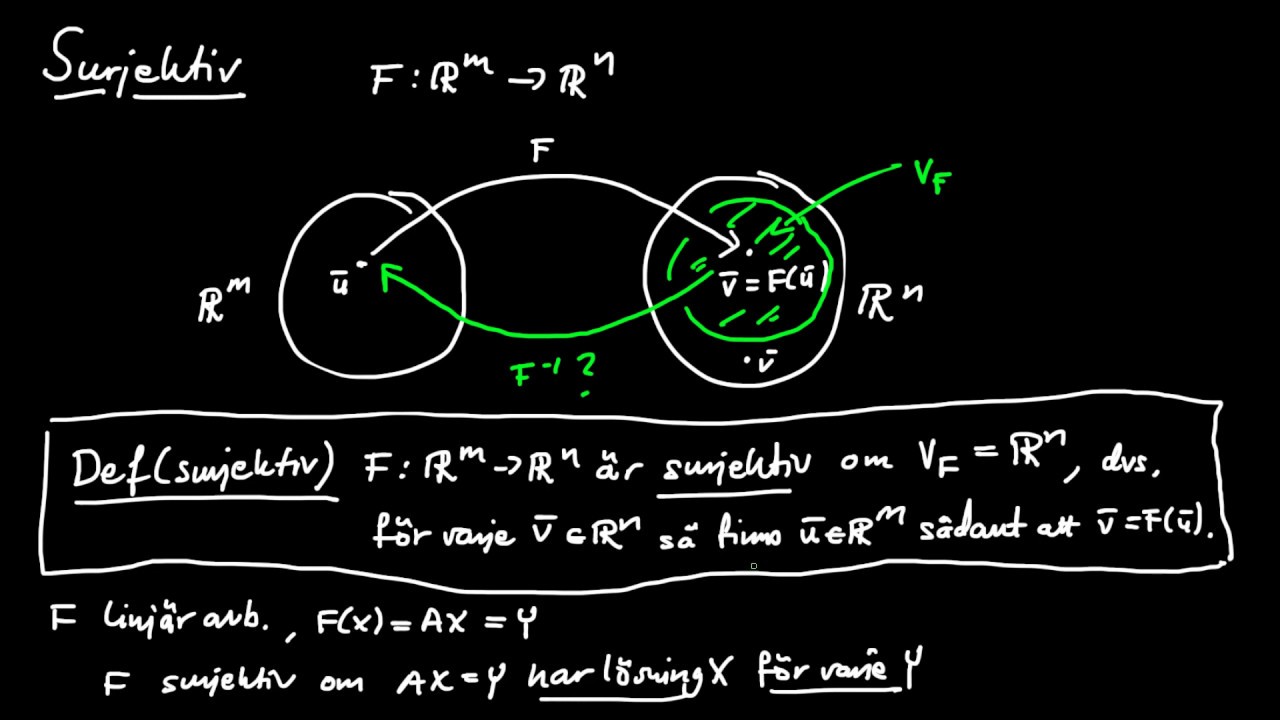 Surjektiv F : ℝᵐ → ℝⁿ
F
V_F
ū
v̄ = F(ū)
ℝᵐ
ℝⁿ
v̄
F⁻¹ ?
Def(surjektiv) F : ℝᵐ → ℝⁿ är surjektiv om V_F = ℝⁿ, dvs.
för varje v̄ ∈ ℝⁿ så finns ū ∈ ℝᵐ sådant att v̄ = F(ū).
F linjär avb., F(x) = AX = Y
F surjektiv om AX = Y har lösning X för varje Y